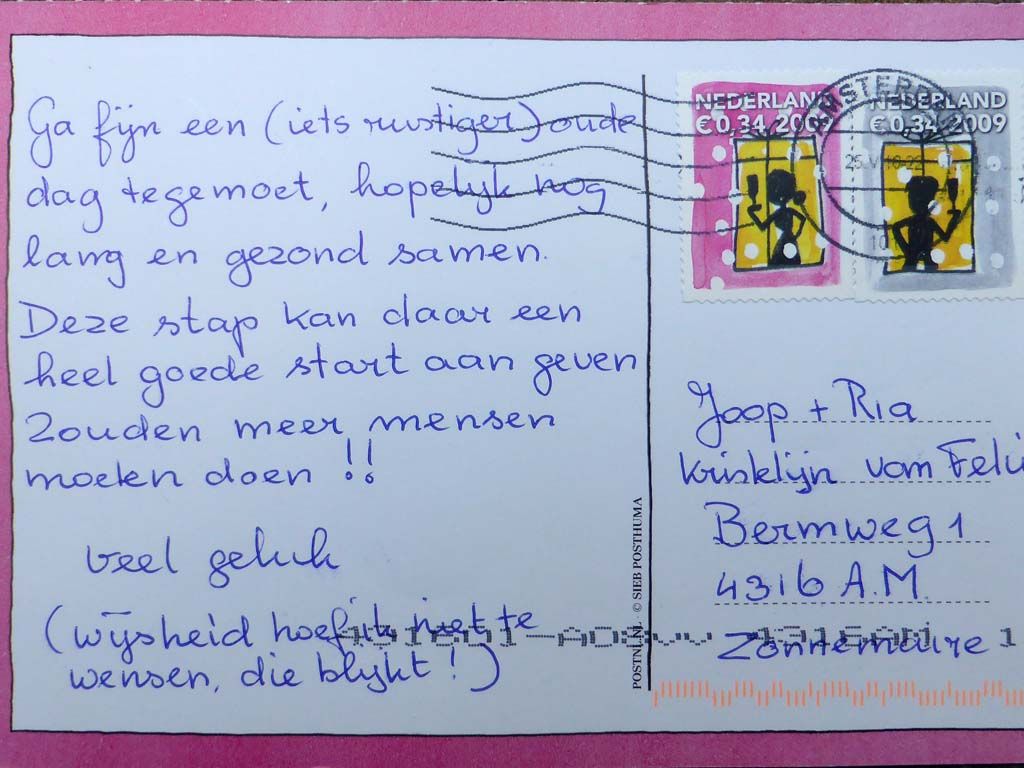 Ga fijn een (iets rustiger) oude
dag tegemoet, hopelijk nog
lang en gezond samen.
Deze stap kan daar een
heel goede start aan geven
Zouden meer mensen
moeten doen !!
veel geluk
(wijsheid hoef ik niet te
wensen, die blijkt!)
POSTNL.NL © SIEB POSTHUMA
NEDERLAND
€ 0,34 2009
NEDERLAND
€ 0,34 2009
AMSTERDAM
Joop + Ria
Krisklijn vom Feli
Bermweg 1
4316 A.M.
Zonnemaire